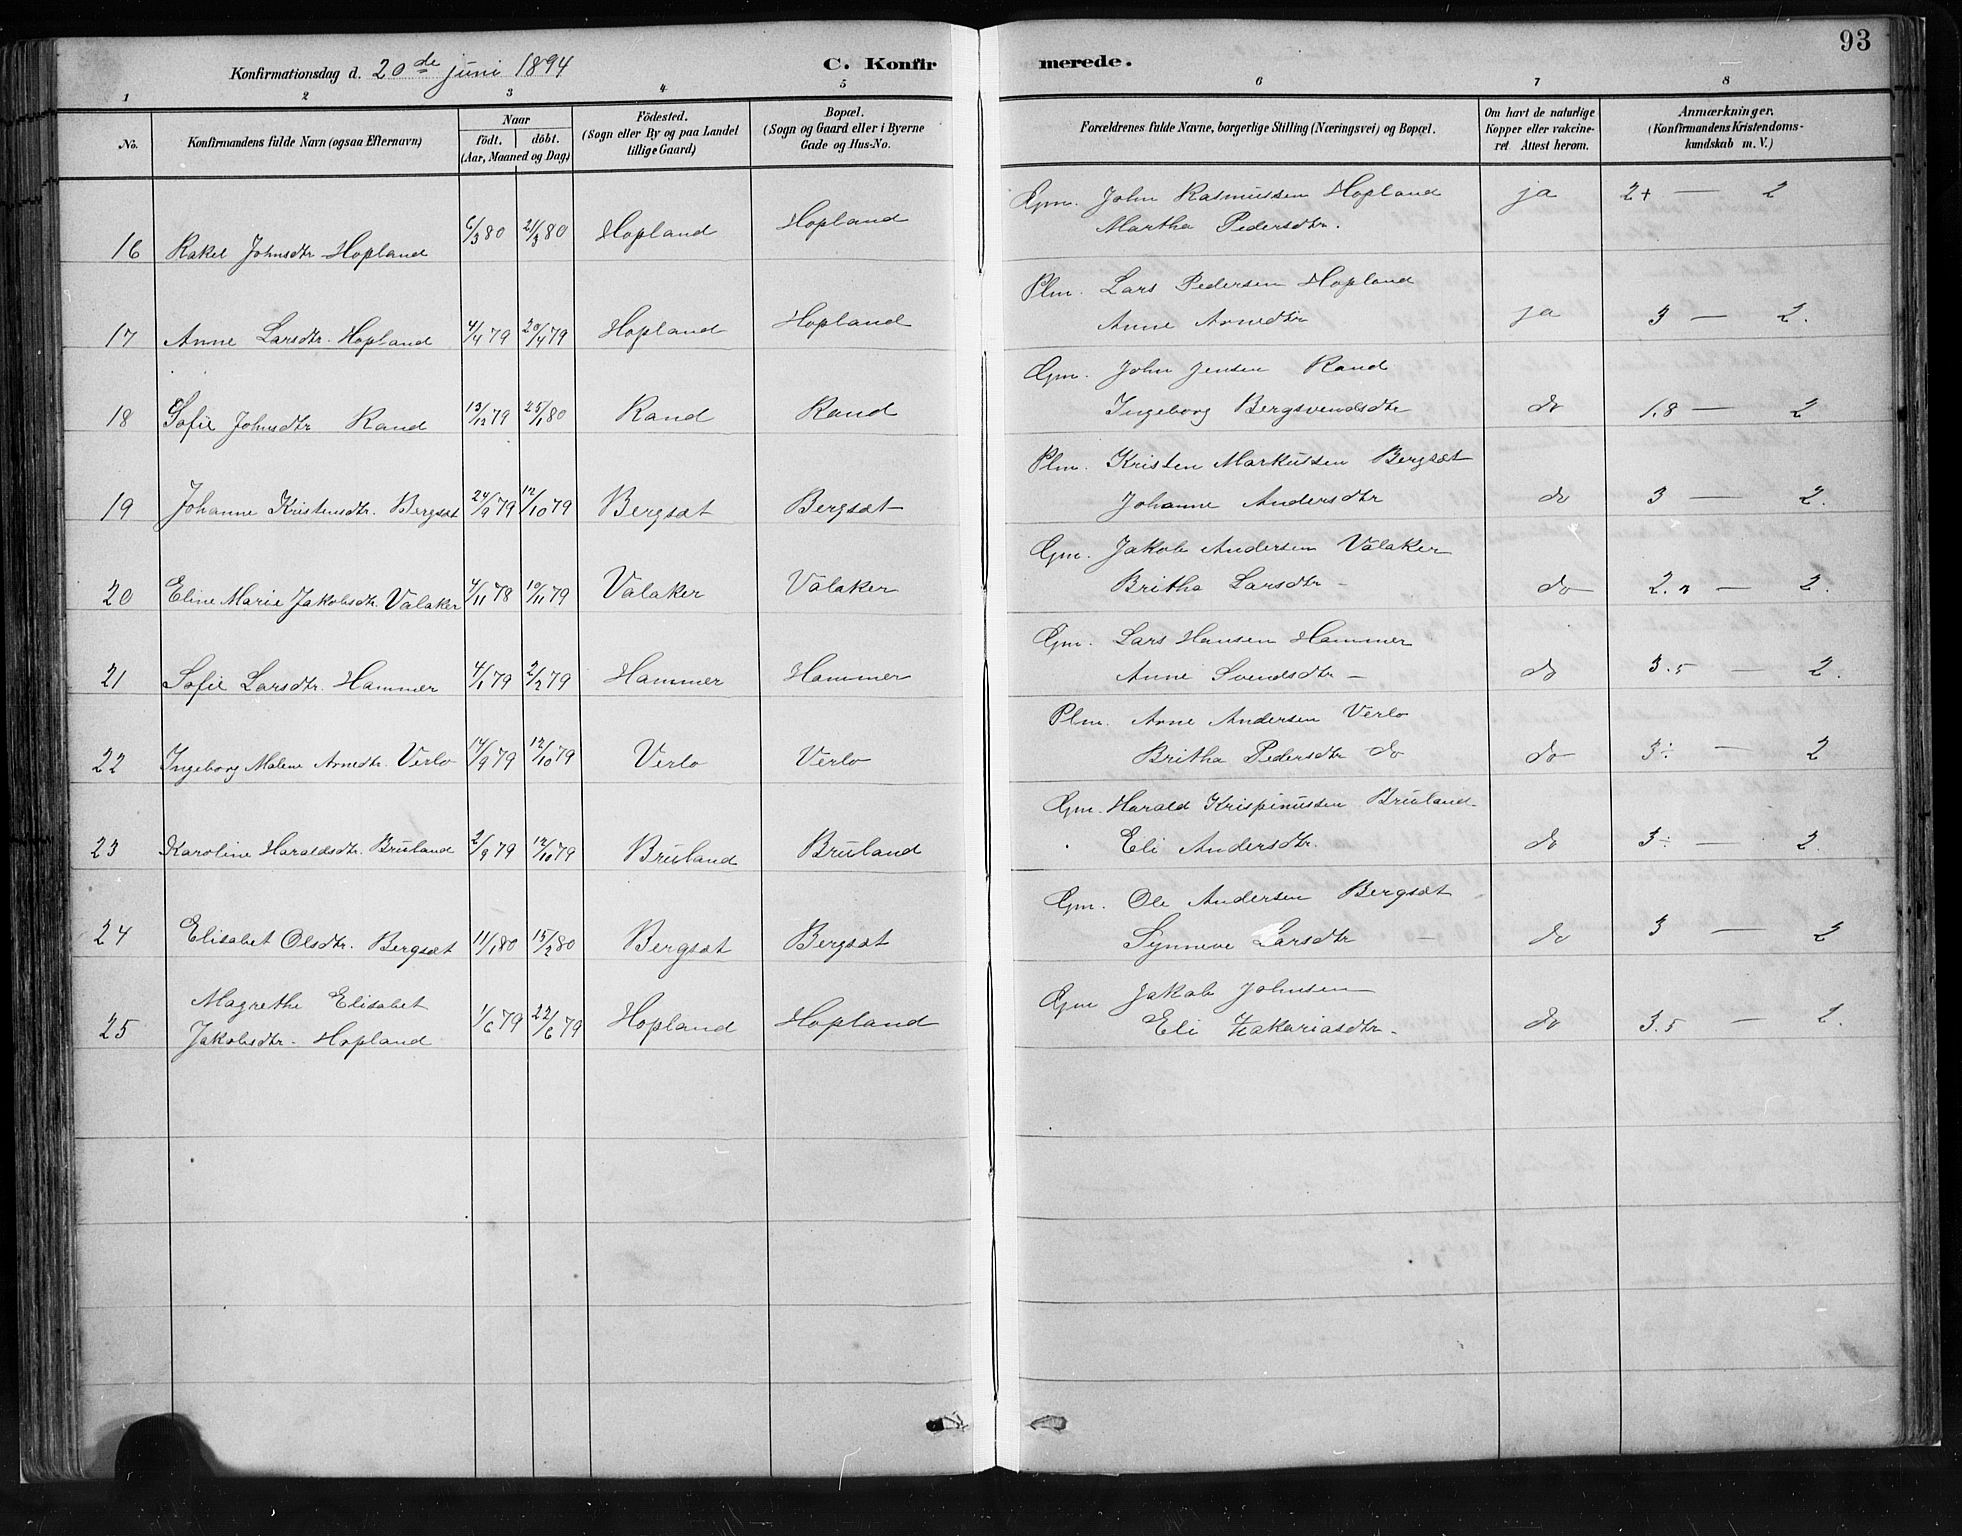 93
Konfirmationsdag d. 20de juni 1894 C. Konfirmerede.
1 2 3 4 5 6 7 8
No. Konfirmandens fulde Navn (ogsaa Efternavn) Naar födt. döbt. (Aar, Maaned og Dag) Födested. (Sogn eller By og paa Landet tillige Gaard) Bopæl. (Sogn og Gaard eller i Byerne Gade og Hus-No. Forældrenes fulde Navne, borgerlige Stilling (Næringsvei) og Bopæl. Om havt de naturlige Kopper eller vakcineret. Attest herom. Anmærkninger. (Konfirmandens Kristendomskundskab m. V.)
16 Rakel Johnsdtr Hopland 6/3 80 21/3 80 Hopland Hopland Gm. John Rasmussen Hopland ja 2+ — 2
Martha Pedersdtr.
17 Anne Larsdtr. Hopland 4/4 79 20/4 79 Hopland Hopland Plm. Lars Pedersen Hopland
Anne Arnedtr ja 3 — 2.
18 Sofie Johnsdtr Rand 13/12 79 25/1 80 Rand Rand Gm. John Jensen Rand
Ingeborg Bergsvendsdtr do 1,8 — 2
19 Johanne Kristensdtr. Bergsæt 24/9 79 12/10 79 Bergsæt Bergsæt Plm. Kristen Markussen Bergsæt
Johanne Andersdtr do 3 — 2.
20 Eline Marie Jakobsdtr. Valaker 4/11 78 10/11 79 Valaker Valaker Gm. Jakob Andersen Valaker
Britha Larsdtr - do — 2.
21 Sofie Larsdtr. Hammer 4/1 79 2/2 79 Hammer Hammer Gm. Lars Hansen Hammer
Anne Svendsdtr - do 3.5 — 2.
22 Ingeborg Malene Arnedtr. Verlo 14/9 79 12/10 79 Verlo Verlo Plm. Arne Andersen Verlo
Britha Pedersdtr do do 3÷ — 2
23 Karoline Haraldsdtr. Bruland 2/9 79 12/10 79 Bruland Bruland Gm. Harald Krispinussen Bruland
Eli Andersdtr. do 3÷ — 2.
24 Elisabet Olsdtr. Bergsæt 11/1 80 15/2 80 Bergsæt Bergsæt Gm. Ole Andersen Bergsæt
Synneve Larsdtr - do 3 — 2
25 Magrethe Elisabet
Jakobsdtr. Hopland 1/6 79 22/6 79 Hopland Hopland Gm Jakob Johnsen
Eli Zakariasdtr. do 3.5 — 2.